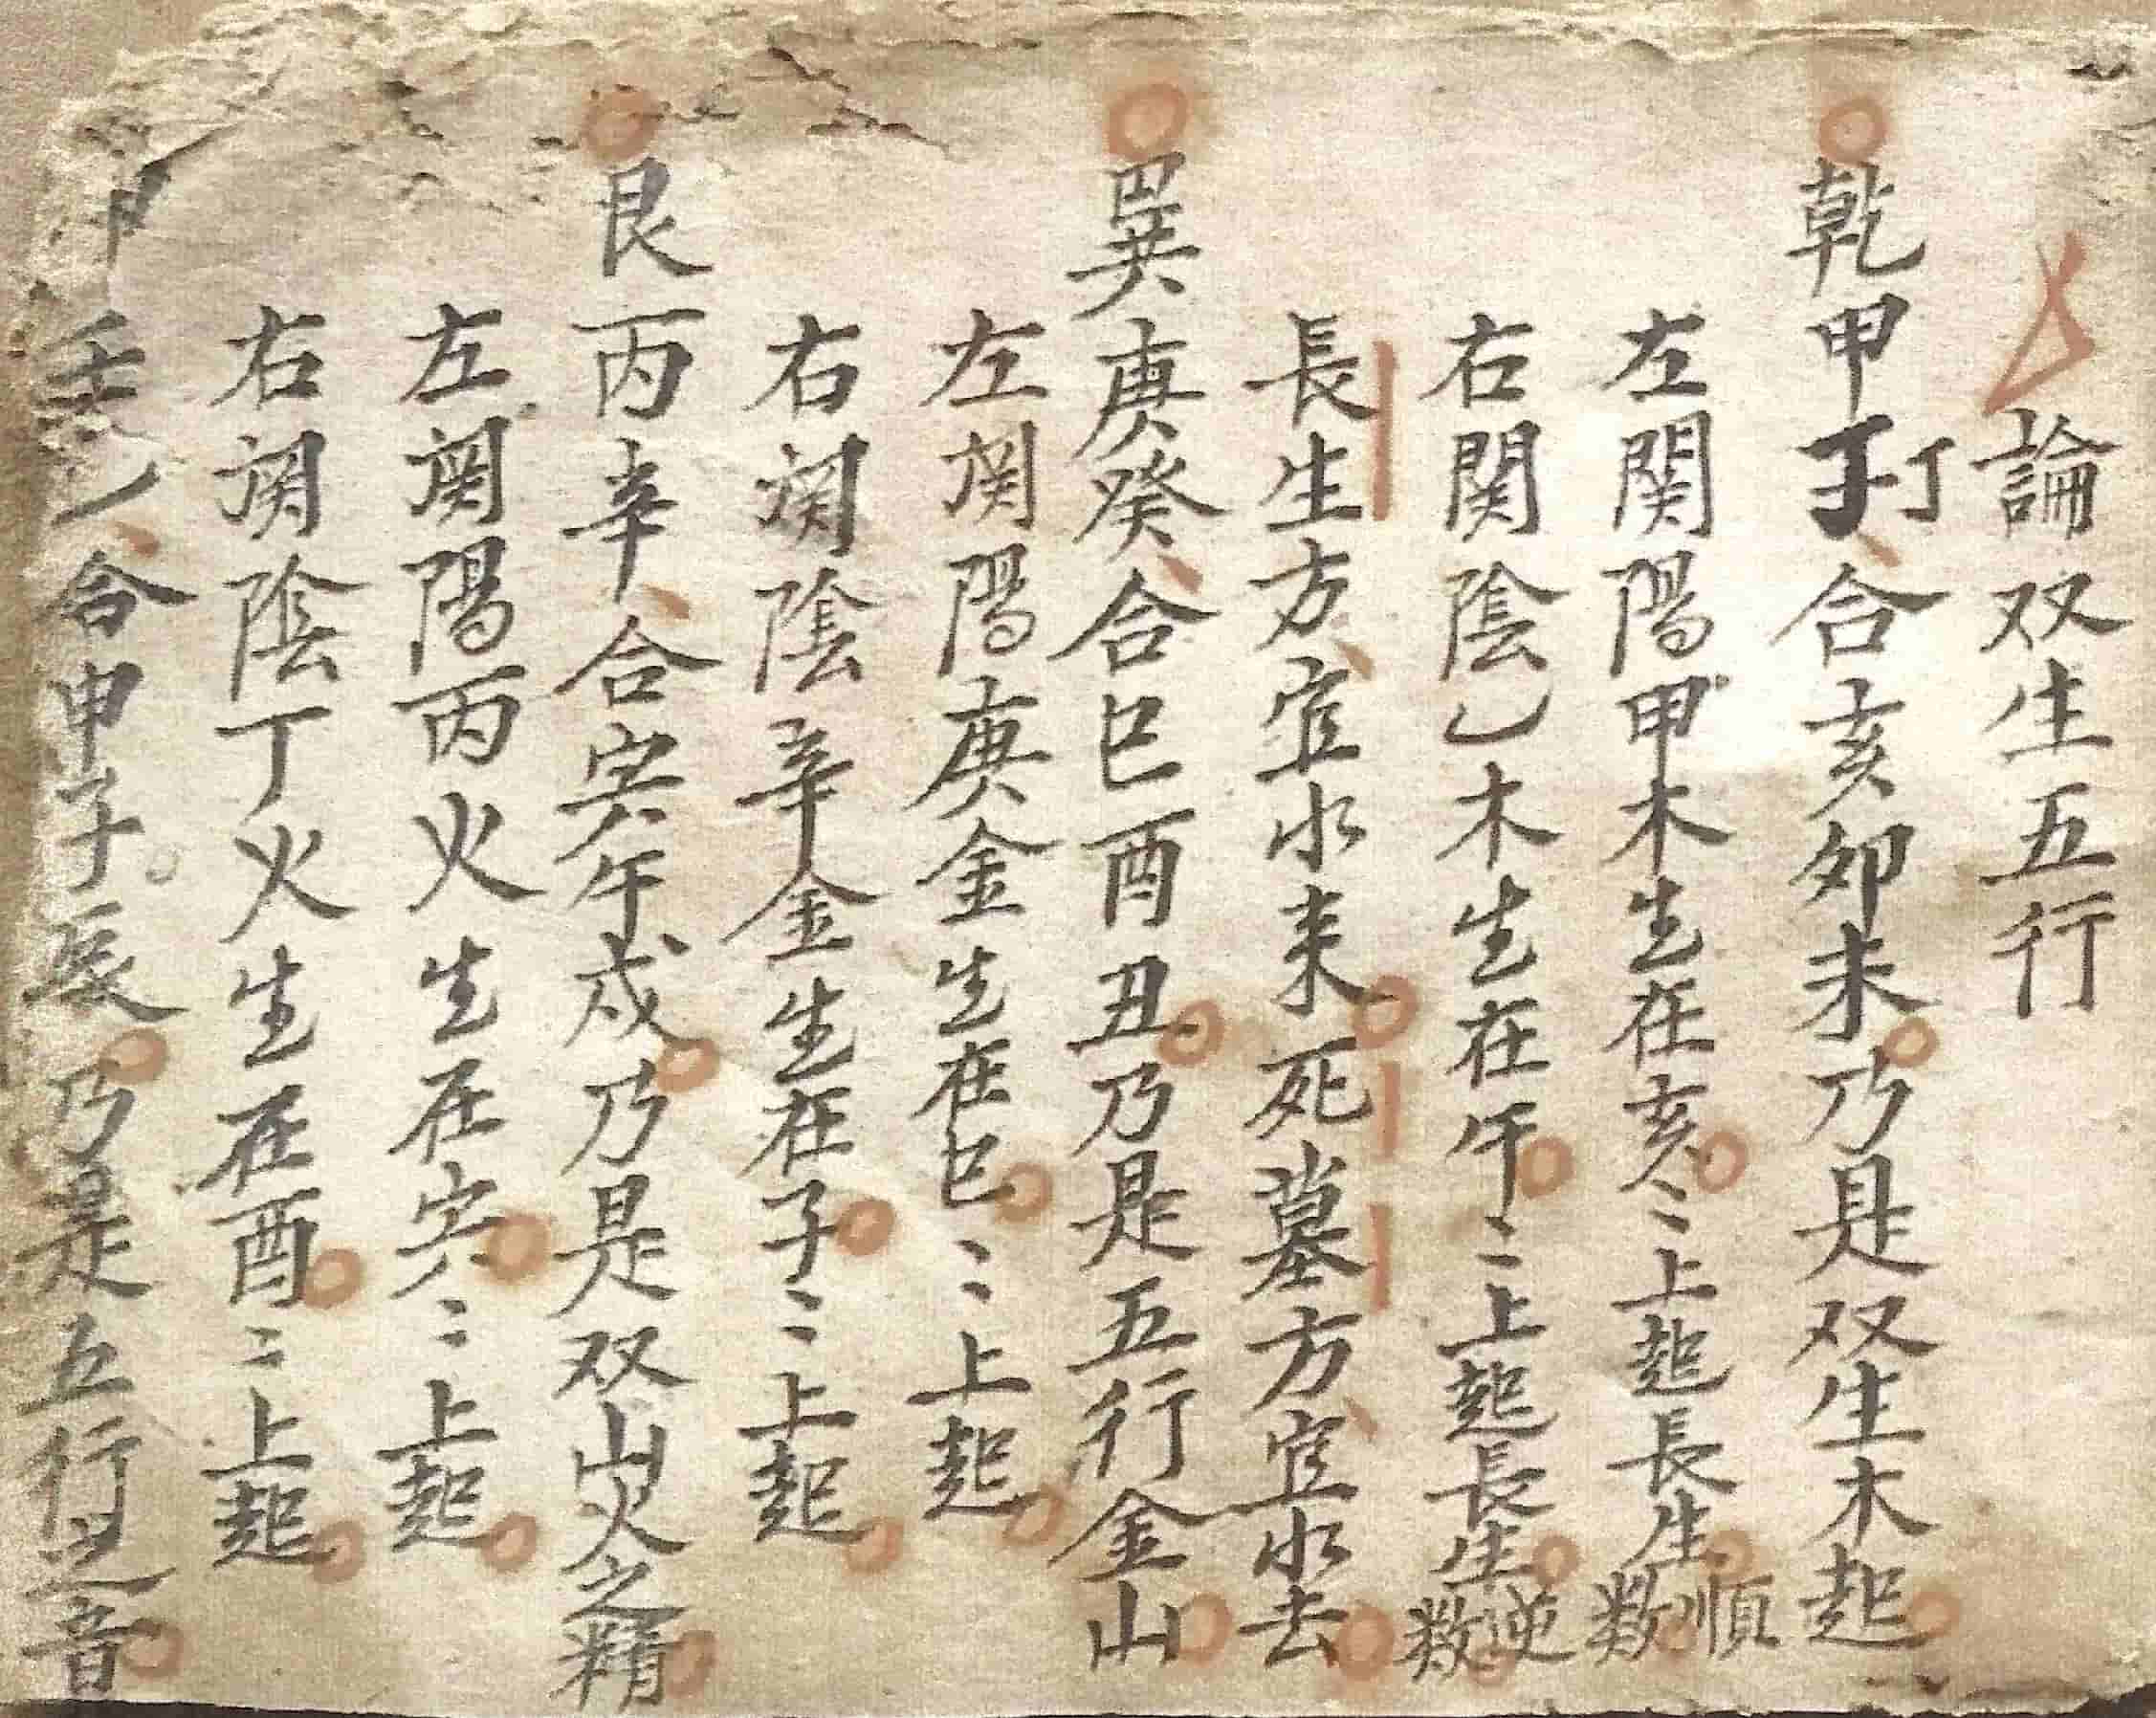 論双生五行
乾甲丁合亥卯未乃是双生木起
左関陽甲木生在亥〻上起長生順数
右関陰乙木生在午〻上起長生逆数
長生方宜水来死墓方宜水去
巽庚癸合巳酉丑乃是五行金山
左関陽庚金生在巳〻上起
右関陰辛金生在子〻上起
艮丙辛合寅午戌乃是双山火之精
左関陽丙火生在寅〻上起
右関陰丁火生在酉〻上起
壬乙合申子辰乃是五行之音